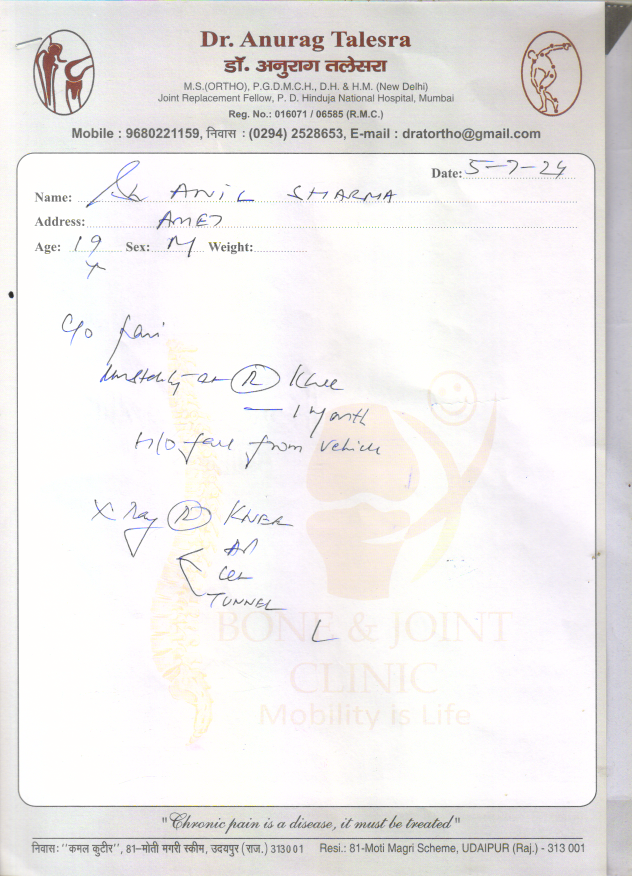 Dr. Anurag Talesra
डॉ. अनुराग तलेसरा
M.S.(ORTHO), P.G.D.M.C.H., D.H. & H.M. (New Delhi)
Joint Replacement Fellow, P. D. Hinduja National Hospital, Mumbai
Reg. No.: 016071 / 06585 (R.M.C.)
Mobile : 9680221159, निवास : (0294) 2528653, E-mail : dratortho@gmail.com
Date: 5-7-24
Name: ANIL SHARMA
Address: AMET
Age: 19 Sex: M Weight:
C/o pain
Instability (R) Knee
1 Month
H/O fall from vehicle
X Ray (R) KNEE
AP
Lat
TUNNEL
BONE & JOINT
CLINIC
Mobility is Life
"Chronic pain is a disease, it must be treated"
निवास: "कमल कुटीर", 81-मोती मगरी स्कीम, उदयपुर (राज.) 313001 Resi.: 81-Moti Magri Scheme, UDAIPUR (Raj.) - 313 001